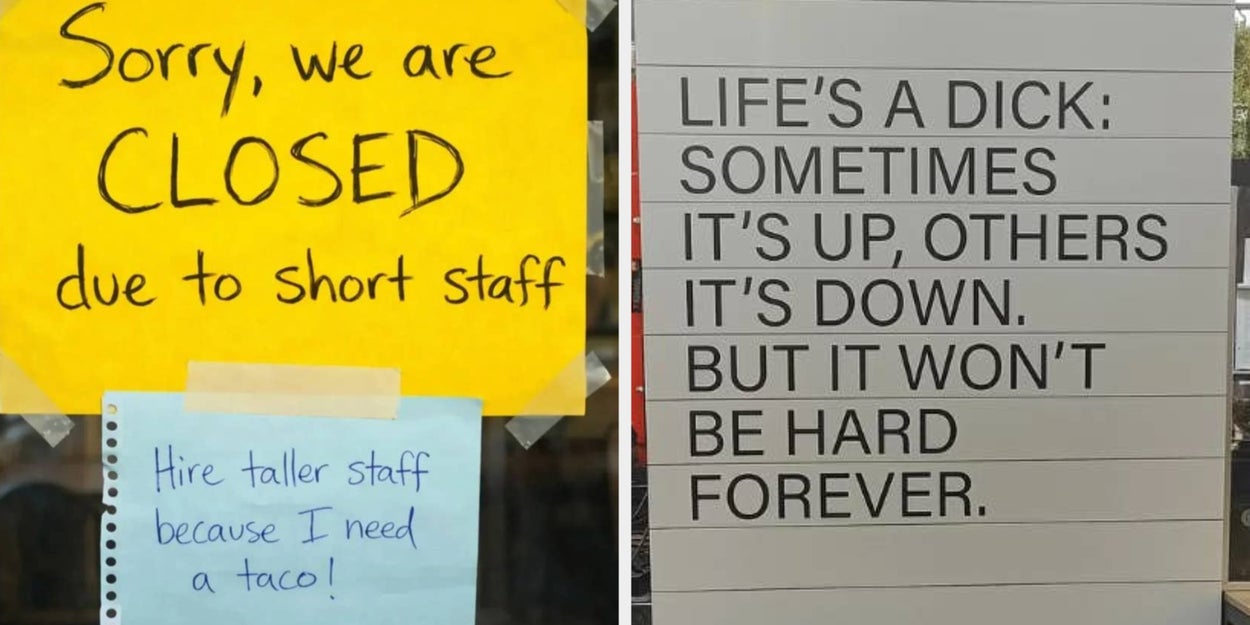 Sorry, we are
CLOSED
due to short staff
Hire taller staff
because I need
a taco!
LIFE'S A DICK:
SOMETIMES
IT'S UP, OTHERS
IT'S DOWN.
BUT IT WON'T
BE HARD
FOREVER.